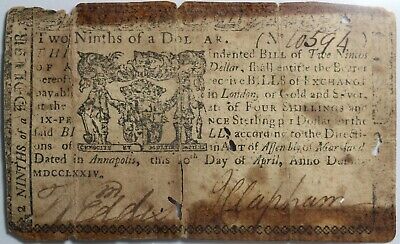 2 NINTHS of a DOLLAR
Two Ninths of a DOLLAR. (No. 10594)
THIS indented BILL of Two Ninths
OF A Dollar, shall entitle the Bearer
hereof ceive BILLS of EXCHANG
payabl in London, or Gold and Silver,
at the ate of FOUR SHILLINGS and
SIX-PE NCE Sterling p Dollar for the
said BI LLS according to the Directi-
ons of an ACT of Assembly of Maryland
CRESCITE ET MULTIPLICAMINI
Dated in Annapolis, this 10th Day of April, Anno Dom.
MDCCLXXIV.
Wm Eddis
J Clapham